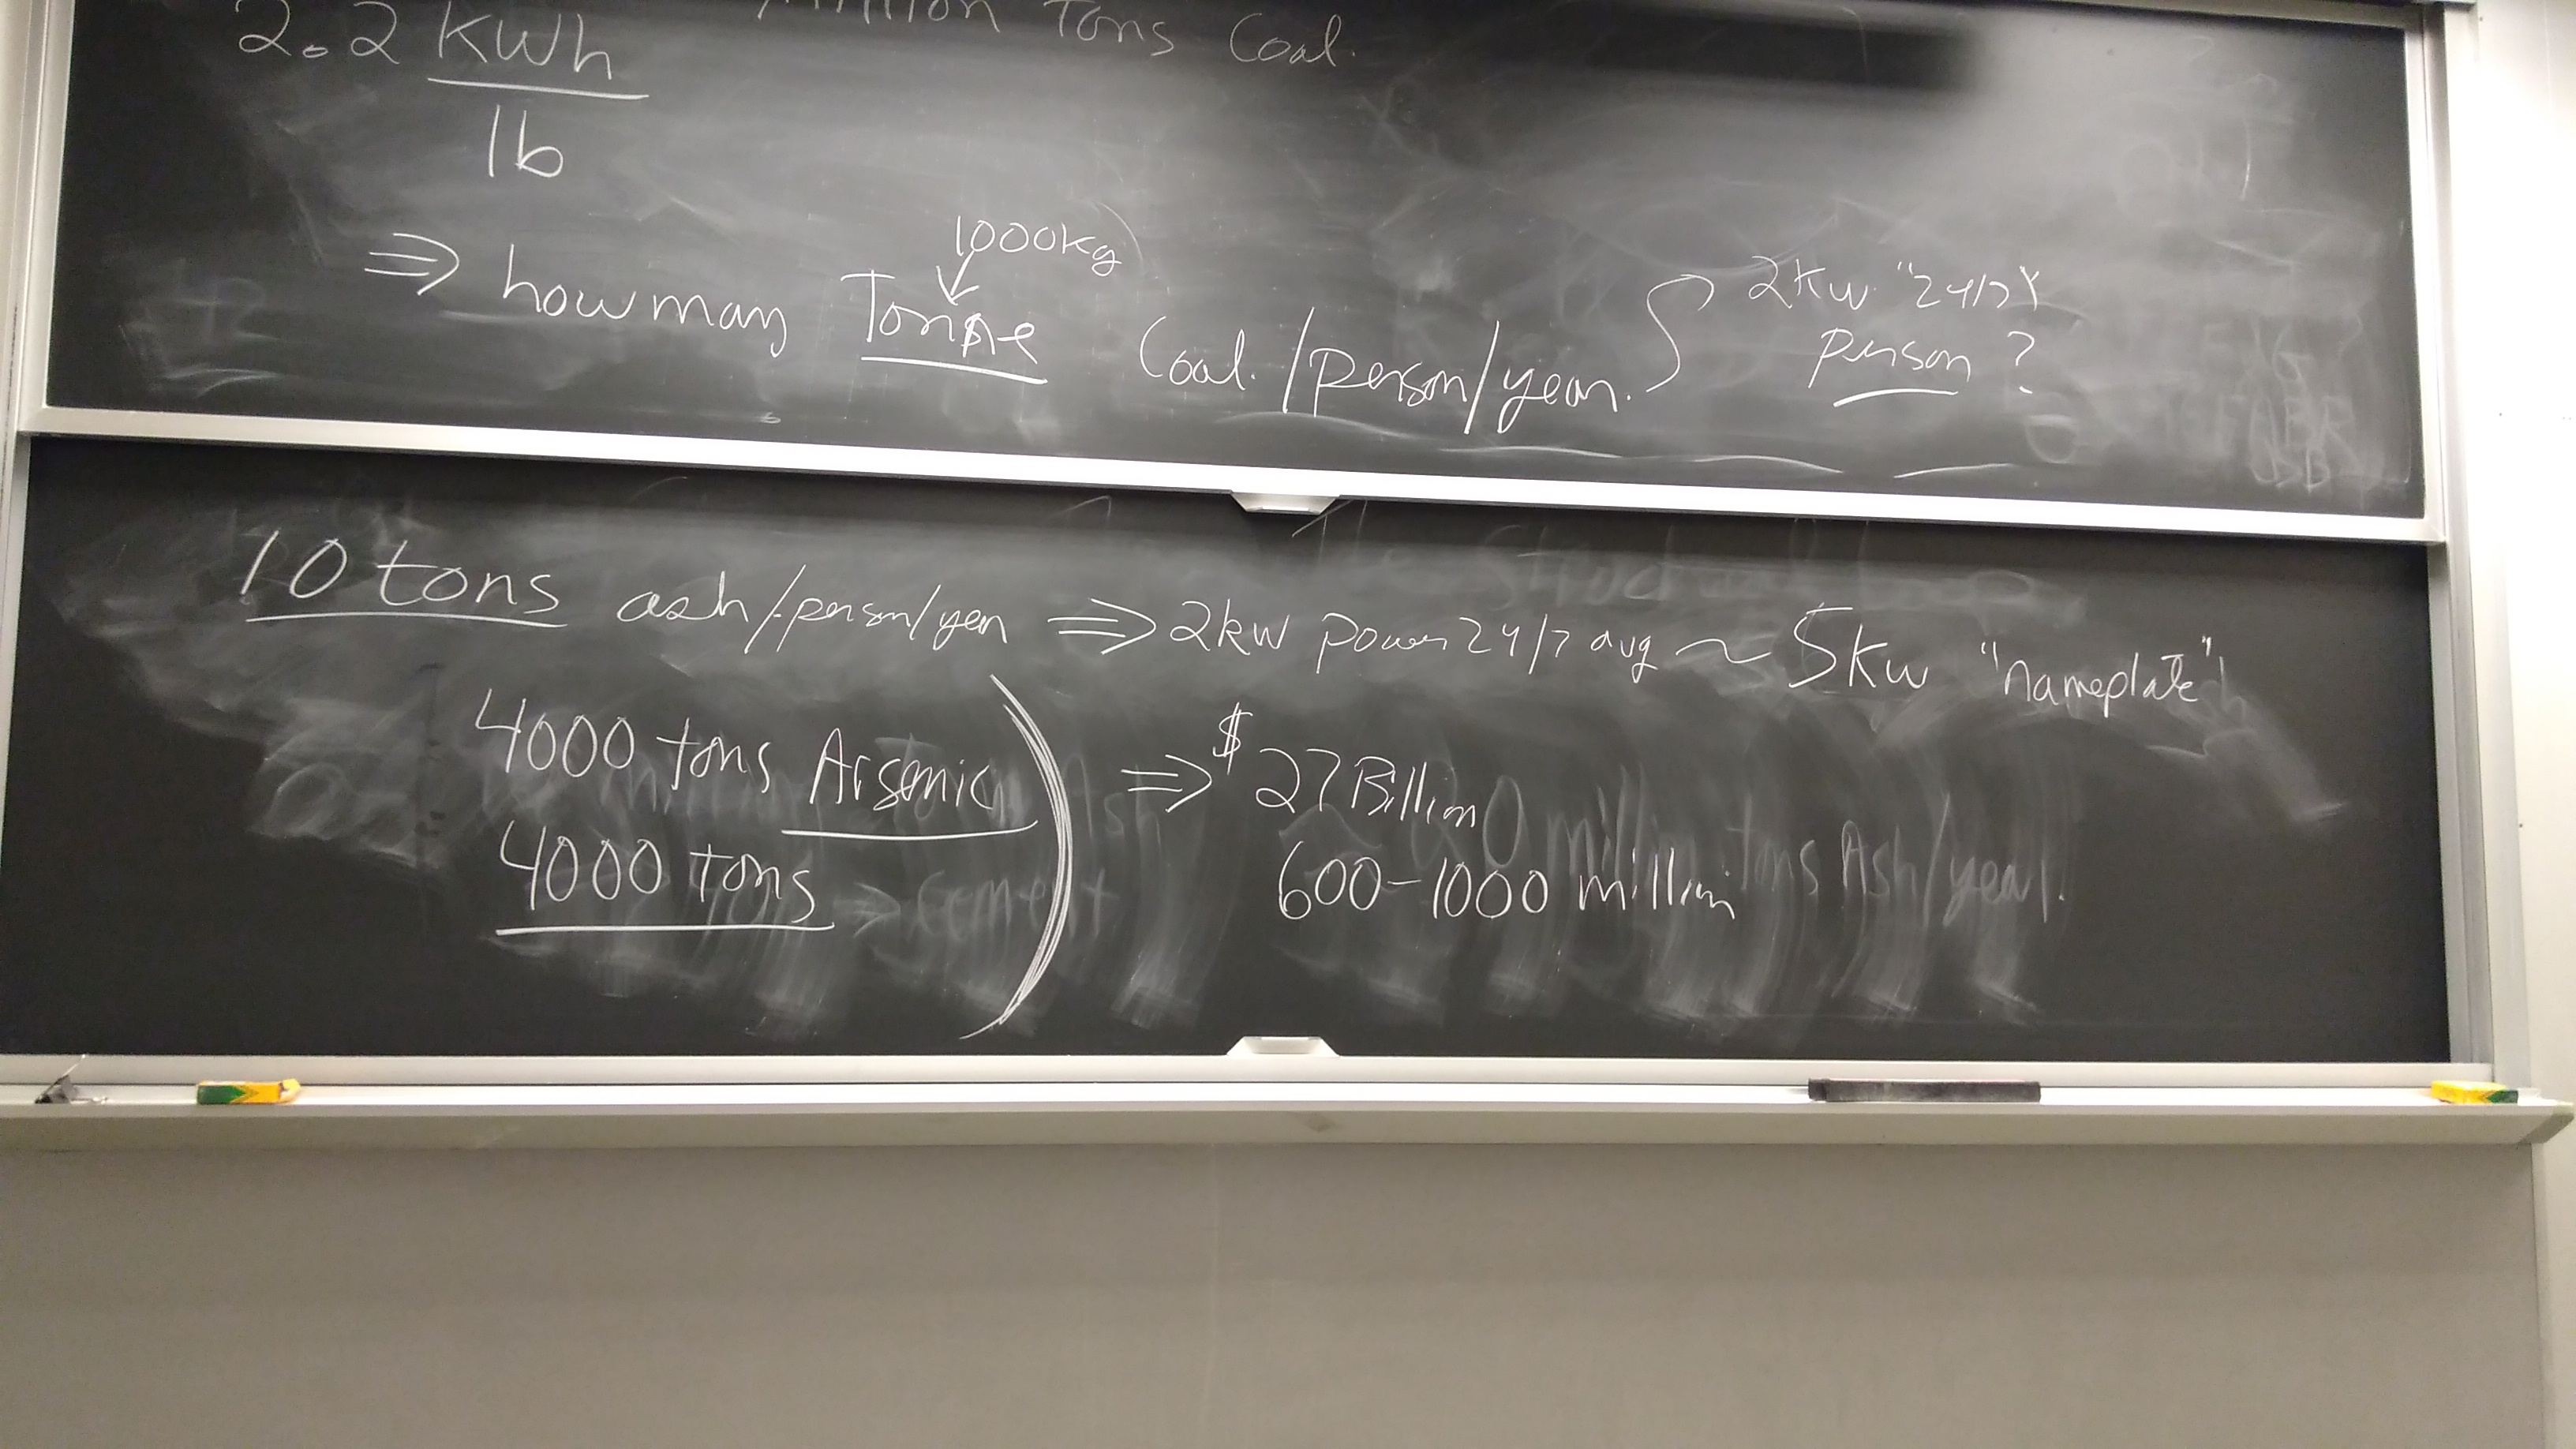 Million Tons Coal.
2.2 KWh
lb
1000kg
⇒ how many Tonne Coal./person/year.
2Kw "24/7"
person ?
10 tons ash/person/year ⇒ 2kw power 24/7 avg ~ 5kw "nameplate"
4000 tons Arsenic
4000 tons
⇒ $27 Billion
600-1000 million
tons Ash/year.
cement